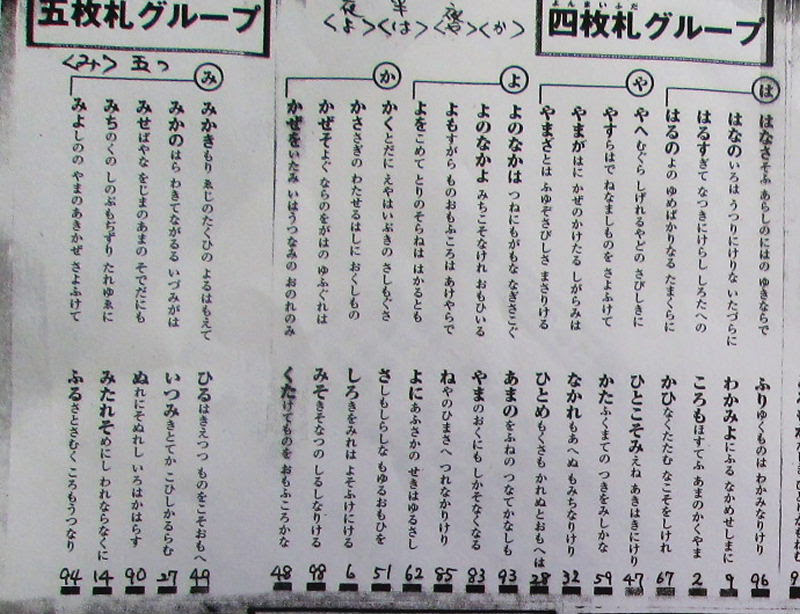 よんまいふだ
四枚札グループ
は
はなさそふ あらしのにはの ゆきならで
ふりゆくものは わかみなりけり
96
はなのいろは うつりにけりな いたづらに
わかみよにふる なかめせしまに
9
はるすぎて なつきにけらし しろたへの
ころもほすてふ あまのかくやま
2
はるのよの ゆめばかりなる たまくらに
かひなくたたむ なこそをしけれ
67
や
やへむぐら しげれるやどの さびしきに
ひとこそみえね あきはきにけり
47
やすらはで ねなましものを さよふけて
かたふくまての つきをみしかな
59
やまがはに かぜのかけたる しがらみは
なかれもあへぬ もみちなりけり
32
やまざとは ふゆぞさびしさ まさりける
ひとめもくさも かれぬとおもへは
28
よ
よのなかは つねにもがもな なぎさこぐ
あまのをふねの つなてかなしも
93
よのなかよ みちこそなけれ おもひいる
やまのおくにも しかそなくなる
83
よもすがら ものおもふころは あけやらで
ねやのひまさへ つれなかりけり
85
よをこめて とりのそらねは はかるとも
よにあふさかの せきはゆるさし
62
か
かくとだに えやはいぶきの さしもぐさ
さしもしらしな もゆるおもひを
51
かささぎの わたせるはしに おくしもの
しろきをみれは よそふけにける
6
かぜそよぐ ならのをがはの ゆふぐれは
みそきそなつの しるしなりける
98
かぜをいたみ いはうつなみの おのれのみ
くたけてものを おもふころかな
48
<よ> 半<は> <か>
五枚札グループ
<み> 五つ
み
みかきもり ゑじのたくひの よるはもえて
ひるはきえつつ ものをこそおもへ
49
みかのはら わきてながるる いづみがは
いつみきとてか こひしかるらむ
27
みせばやな をじまのあまの そでだにも
ぬれにそぬれし いろはかはらす
90
みちのくの しのぶもぢずり たれゆゑに
みたれそめにし われならなくに
14
みよしのの やまのあきかぜ さよふけて
ふるさとさむく ころもうつなり
94